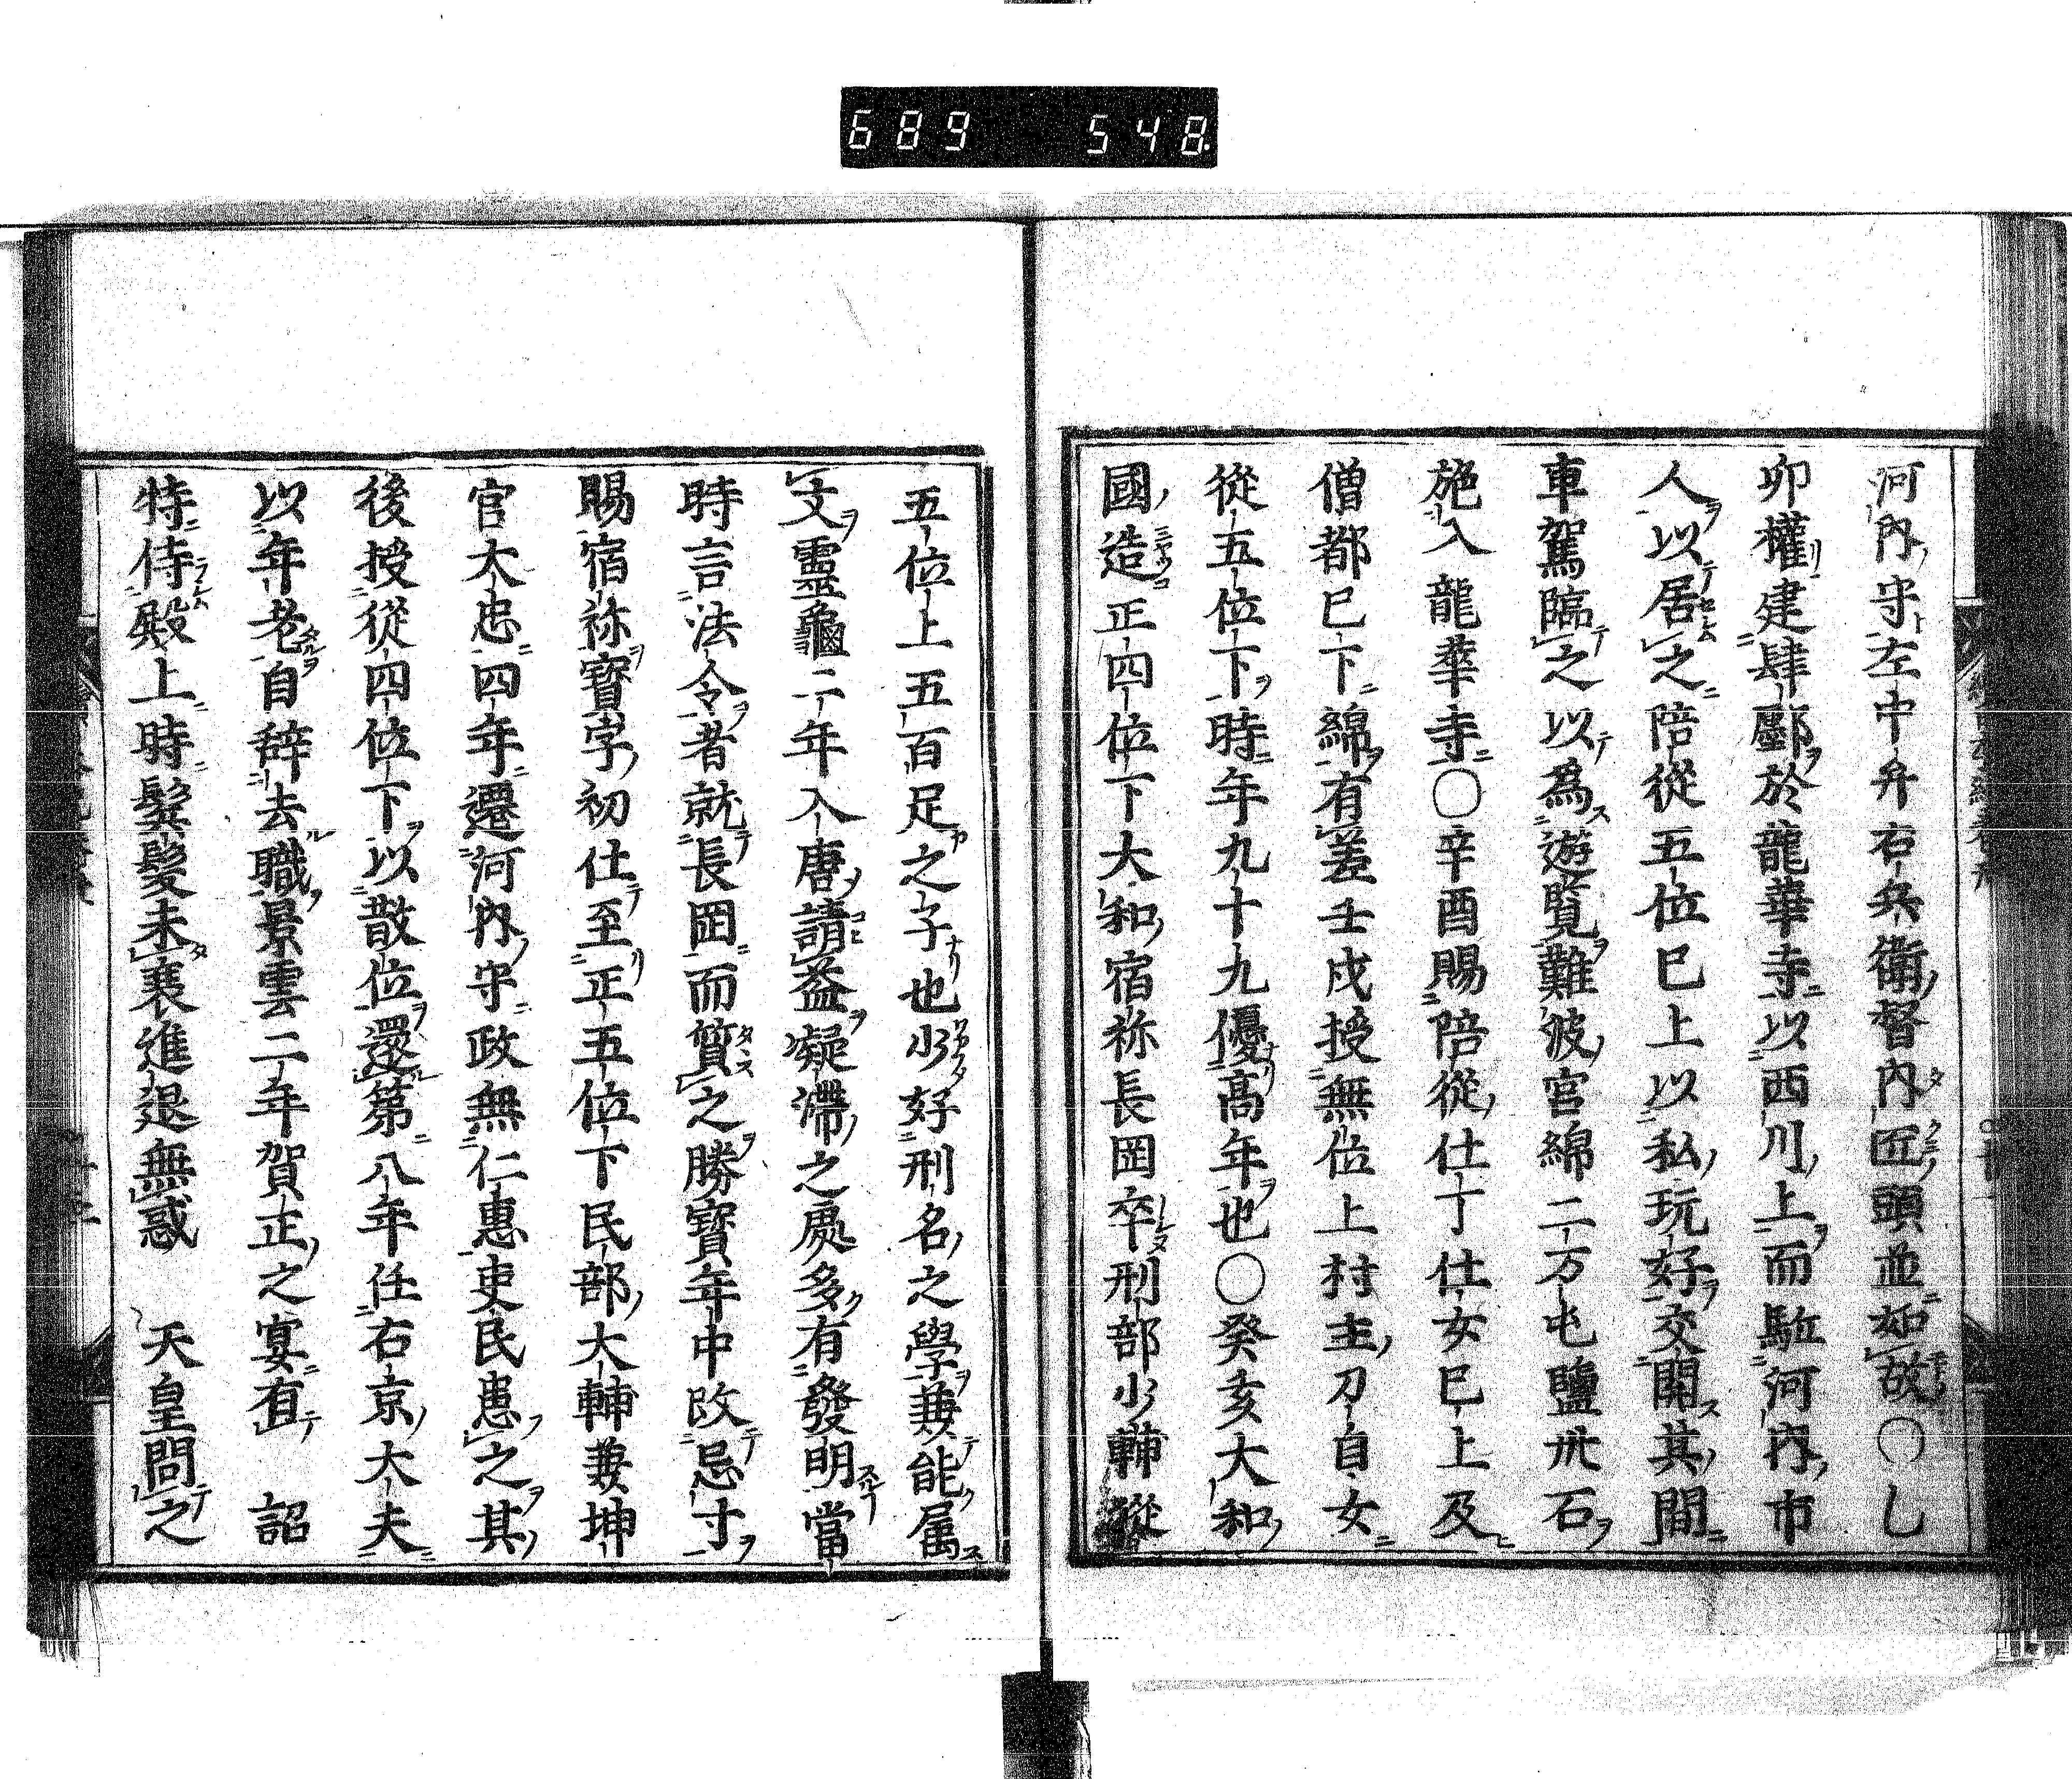 689 548
河內守左中弁右兵衛督內匠頭並如故〇乙
卯權建肆廛於龍華寺以西川上而駈河內市
人以居之陪從五位已上以私玩好交關其間
車駕臨之以為遊覽難波宮綿二万屯鹽卅石
施入龍華寺〇辛酉賜陪從仕丁仕女已上及
僧都已下綿有差壬戌授無位上村主刀自女
從五位下時年九十九優高年也〇癸亥大和
國造正四位下大和宿祢長岡卒刑部少輔從
五位上五百足之子也少好刑名之學兼能属
文靈龜二年入唐請益凝滯之處多有發明當
時言法令者就長岡而質之勝寶年中改忌寸
賜宿祢寶字初仕至正五位下民部大輔兼坤
官大忠四年遷河內守政無仁惠吏民患之其
後授從四位下以散位還第八年任右京大夫
以年老自辞去職景雲二年賀正之宴有 詔
特侍殿上時鬢髮未衰進退無惑 天皇問之